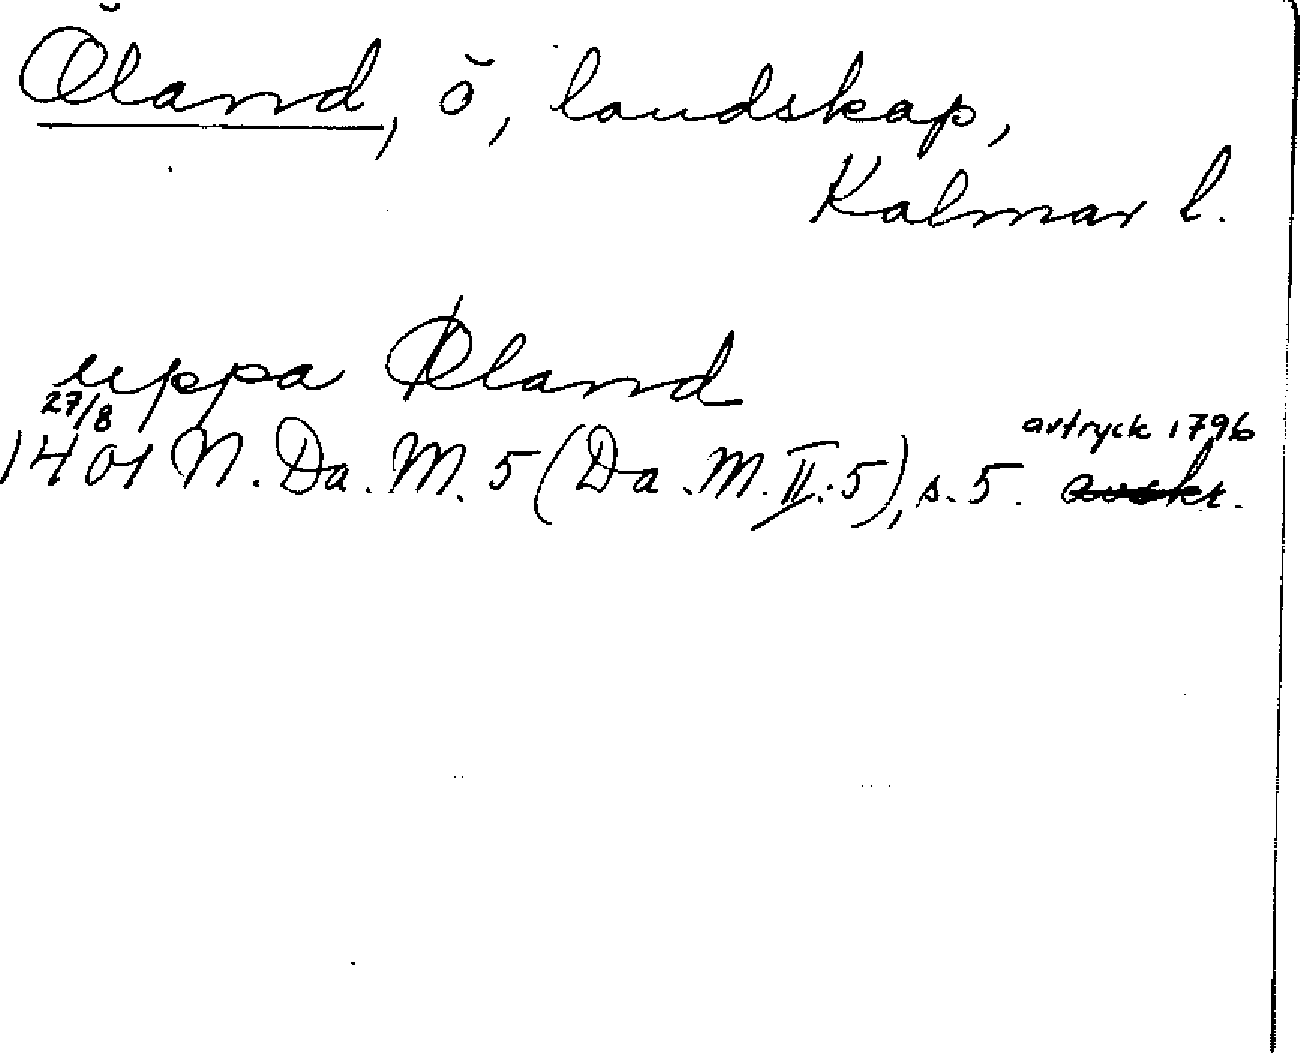 Öland, ö, landskap,
Kalmar l.
uppa Øland
27/8 avtryck 1796
1401 N. Da. M. 5 (Da. M. II:5), s. 5. avskr.